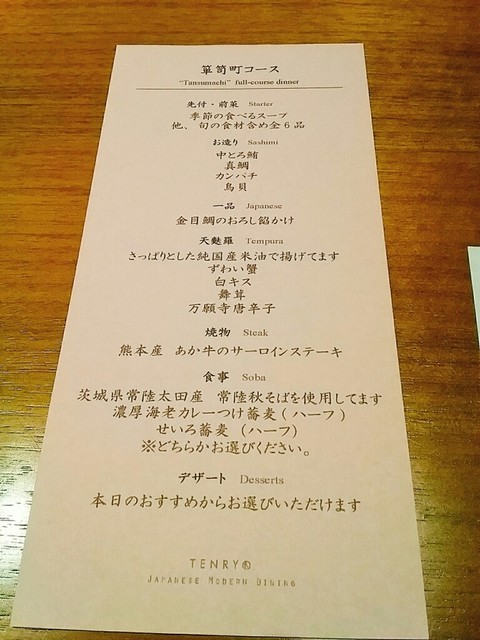 箪笥町コース
"Tansumachi" full-course dinner
先付・前菜 Starter
季節の食べるスープ
他、旬の食材含め全6品
お造り Sashimi
中とろ鮪
真鯛
カンパチ
鳥貝
一品 Japanese
金目鯛のおろし餡かけ
天麩羅 Tempura
さっぱりとした純国産米油で揚げてます
ずわい蟹
白キス
舞茸
万願寺唐辛子
焼物 Steak
熊本産 あか牛のサーロインステーキ
食事 Soba
茨城県常陸太田産 常陸秋そばを使用してます
濃厚海老カレーつけ蕎麦(ハーフ)
せいろ蕎麦 (ハーフ)
※どちらかお選びください。
デザート Desserts
本日のおすすめからお選びいただけます
TENRYO
JAPANESE MODERN DINING